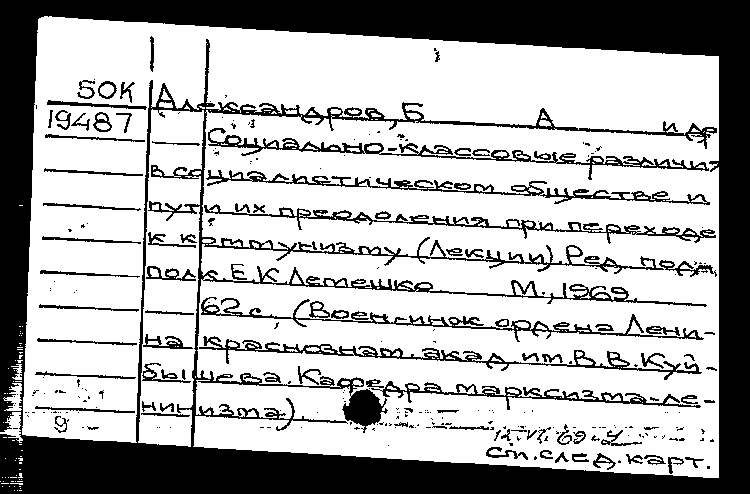 50К Александров, Б А и др
19487 Социально-классовые различия
в социалистическом обществе и
пути их преодоления при переходе
к коммунизму (Лекции). Ред. подп
полк. Е.К Лемешко М., 1969.
62 с. (Воен-инж ордена Лени-
на краснознам. акад. им. В.В. Куй-
бышева. Кафедра марксизма-ле-
нинизма).
9
ст. след. карт.